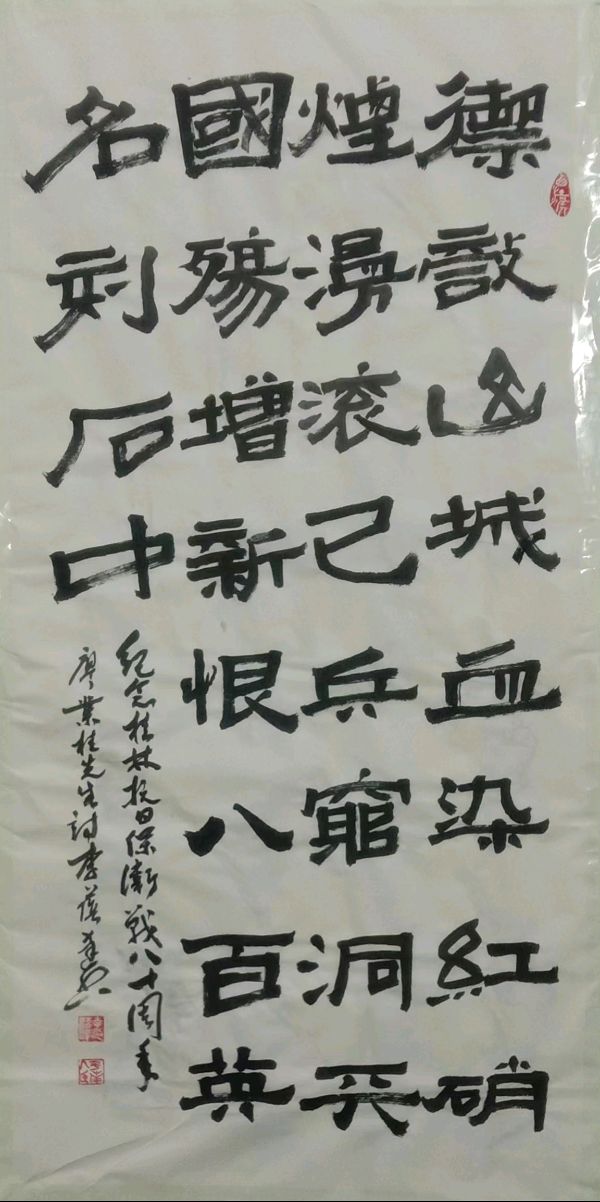 禦敵山城血染紅硝
煙漫滚己兵窮洞天
國殤增新恨八百英
名刻石中
紀念桂林抗日保衛戰八十周年
廖業桂先生詩李